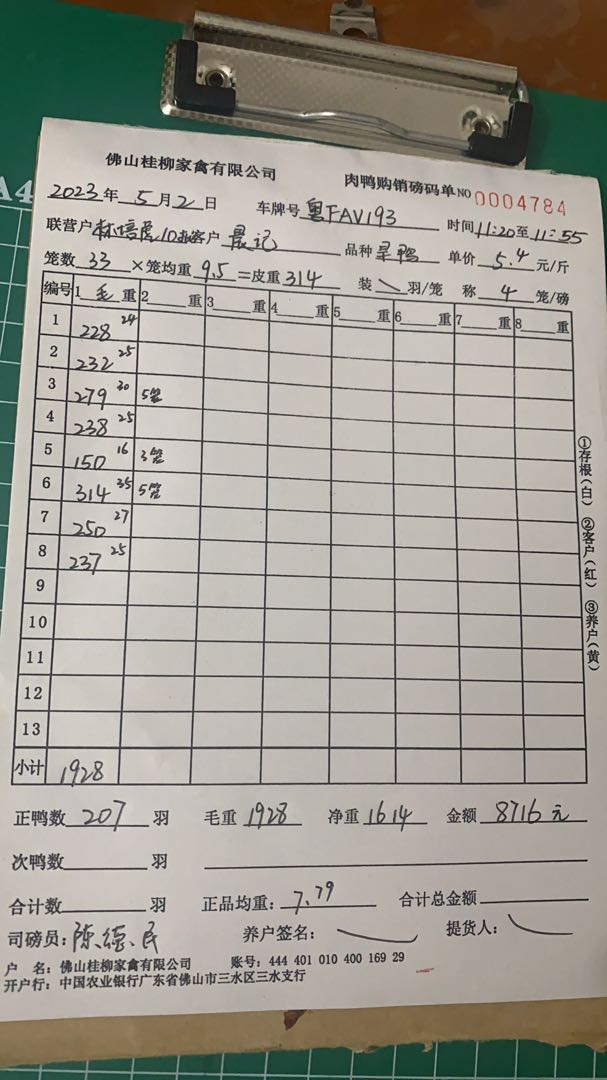 A4
佛山桂柳家禽有限公司 肉鸭购销磅码单 NO 0004784
2023年 5月 2日 车牌号 粤FAV193 时间 11:20至11:55
联营户 林培 10 客户 最记 品种 呈鸭 单价 5.4 元/斤
笼数 33 ×笼均重 9.5 =皮重 314 装 羽/笼 称 4 笼/磅
编号 1 毛 重 2 重 3 重 4 重 5 重 6 重 7 重 8 重
1 228 24
2 232 25
3 279 30 5笼
4 238 25
5 150 16 3笼
6 314 35 5笼
7 250 27
8 237 25
9
10
11
12
13
小计 1928
正鸭数 207 羽 毛重 1928 净重 1614 金额 8716 元
次鸭数 羽
合计数 羽 正品均重: 7.79 合计总金额
司磅员: 陈德民 养户签名: 提货人:
户 名: 佛山桂柳家禽有限公司 账号: 444 401 010 400 169 29
开户行: 中国农业银行广东省佛山市三水区三水支行
①存根(白) ②客户(红) ③养户(黄)